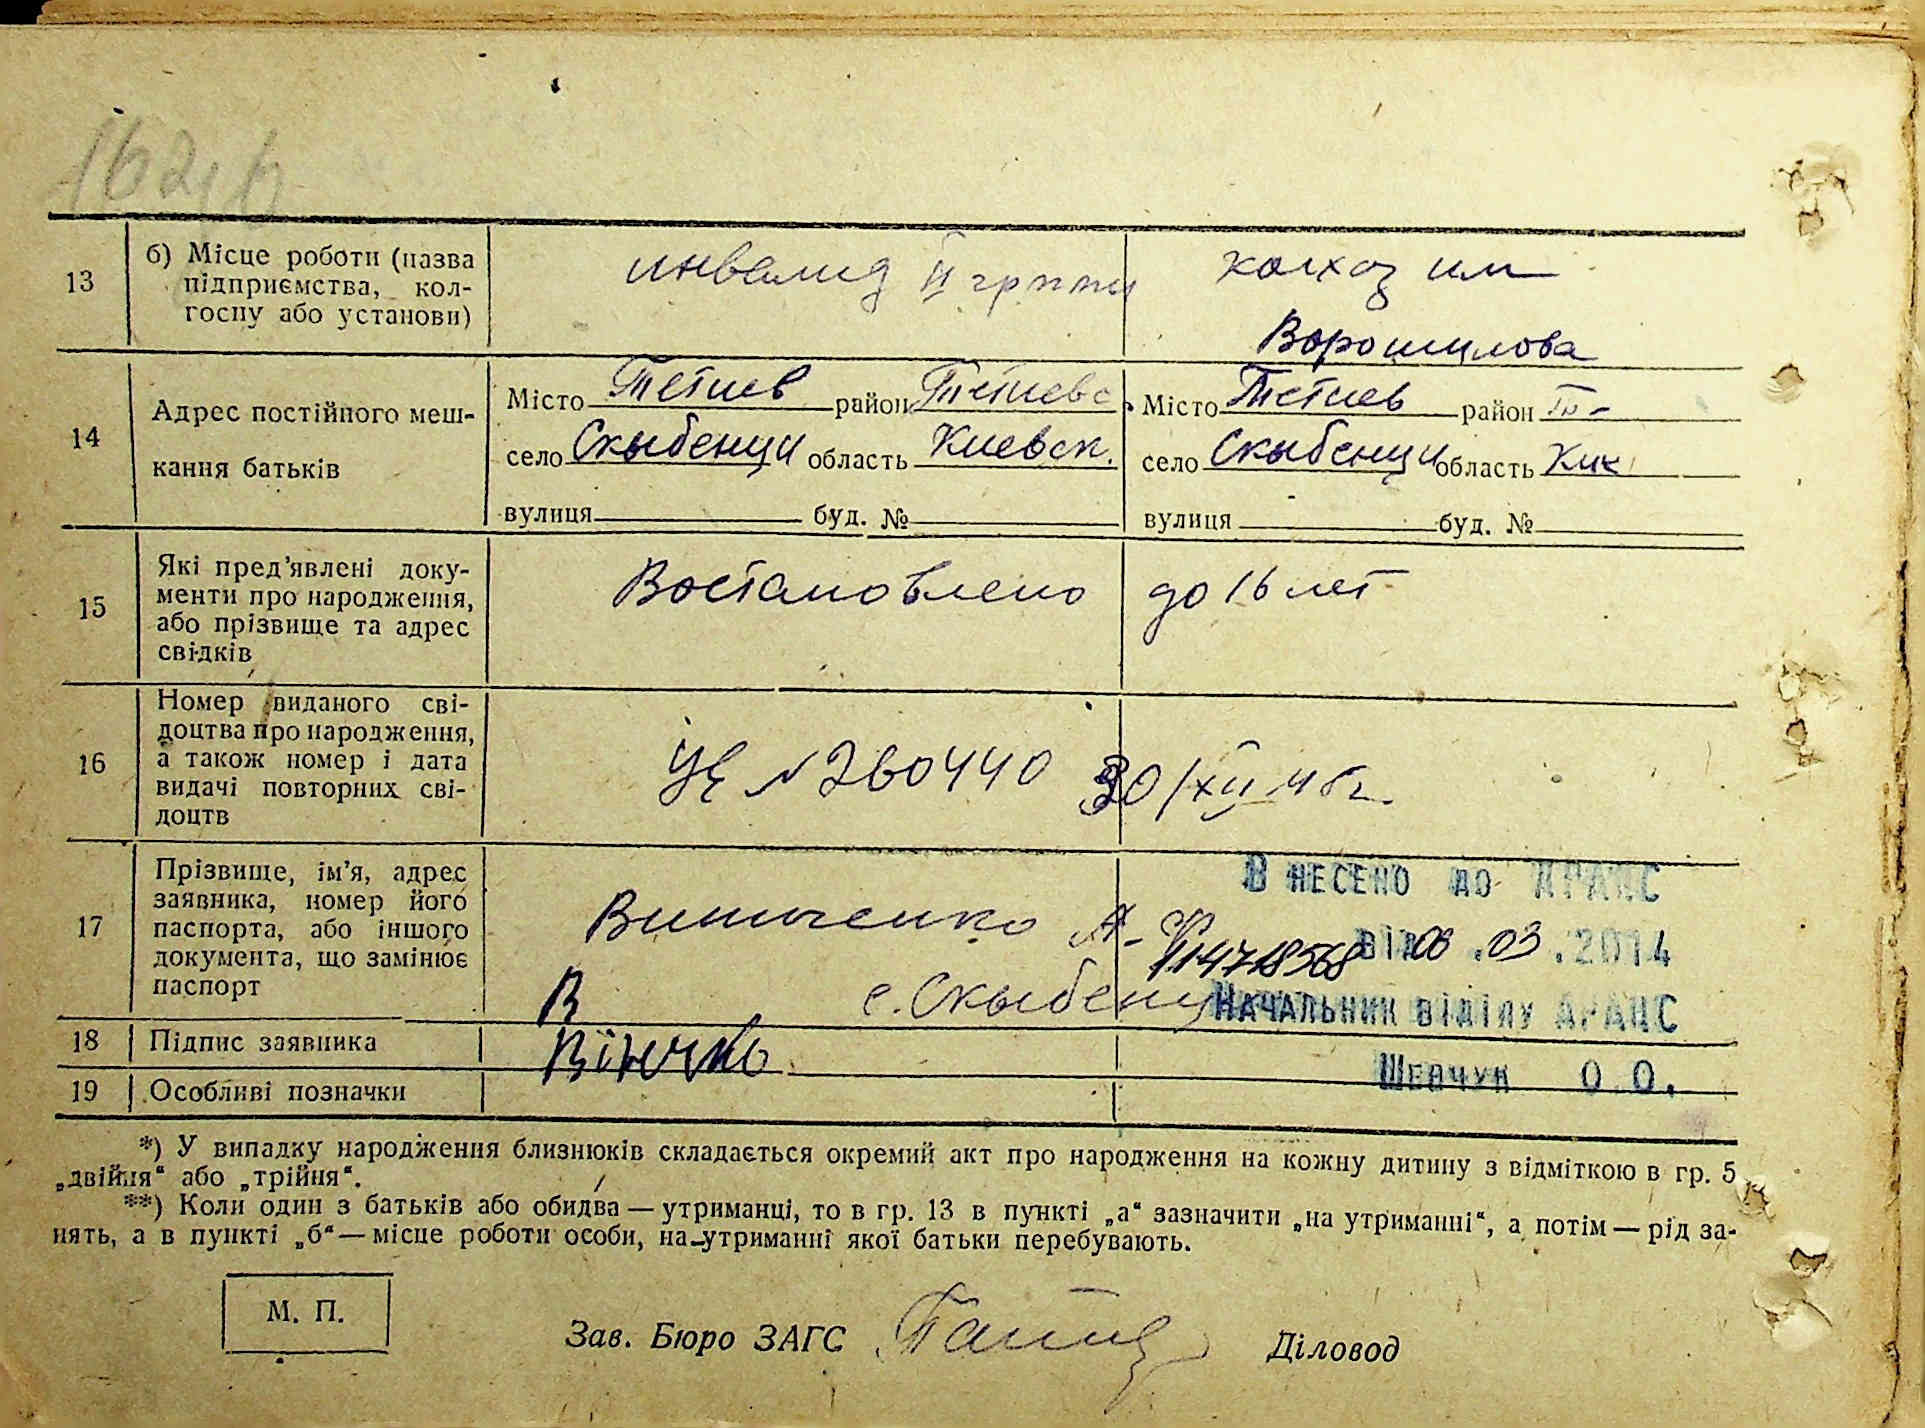 13
б) Місце роботи (назва
підприємства, кол-
госпу або установи)
инвалид II групи
колхоз им
Ворошилова
14
Адрес постійного меш-
кання батьків
Місто Тетиев район Тетиевс.
Місто Тетиев район
село Скыбенци область Киевск.
село Скыбенци область
вулиця буд. №
вулиця буд. №
15
Які пред'явлені доку-
менти про народження,
або прізвище та адрес
свідків
Востановлено до 16 лет
16
Номер виданого сві-
доцтва про народження,
а також номер і дата
видачі повторних сві-
доцтв
№ 260440 30/XII
17
Прізвище, ім'я, адрес
заявника, номер його
паспорта, або іншого
документа, що замінює
паспорт
В
с. Скыбенци
ВНЕСЕНО ДО АРАЦС
ВІД 06.03.2014
НАЧАЛЬНИК ВІДІЛУ АРАЦС
ШЕВЧУК О О.
18 Підпис заявника
19 Особливі позначки
*) У випадку народження близнюків складається окремий акт про народження на кожну дитину з відміткою в гр. 5
„двійня“ або „трійня“.
**) Коли один з батьків або обидва — утриманці, то в гр. 13 в пункті „а“ зазначити „на утриманні“, а потім — рід за-
нять, а в пункті „б“ — місце роботи особи, на утриманні якої батьки перебувають.
М. П.
Зав. Бюро ЗАГС
Діловод